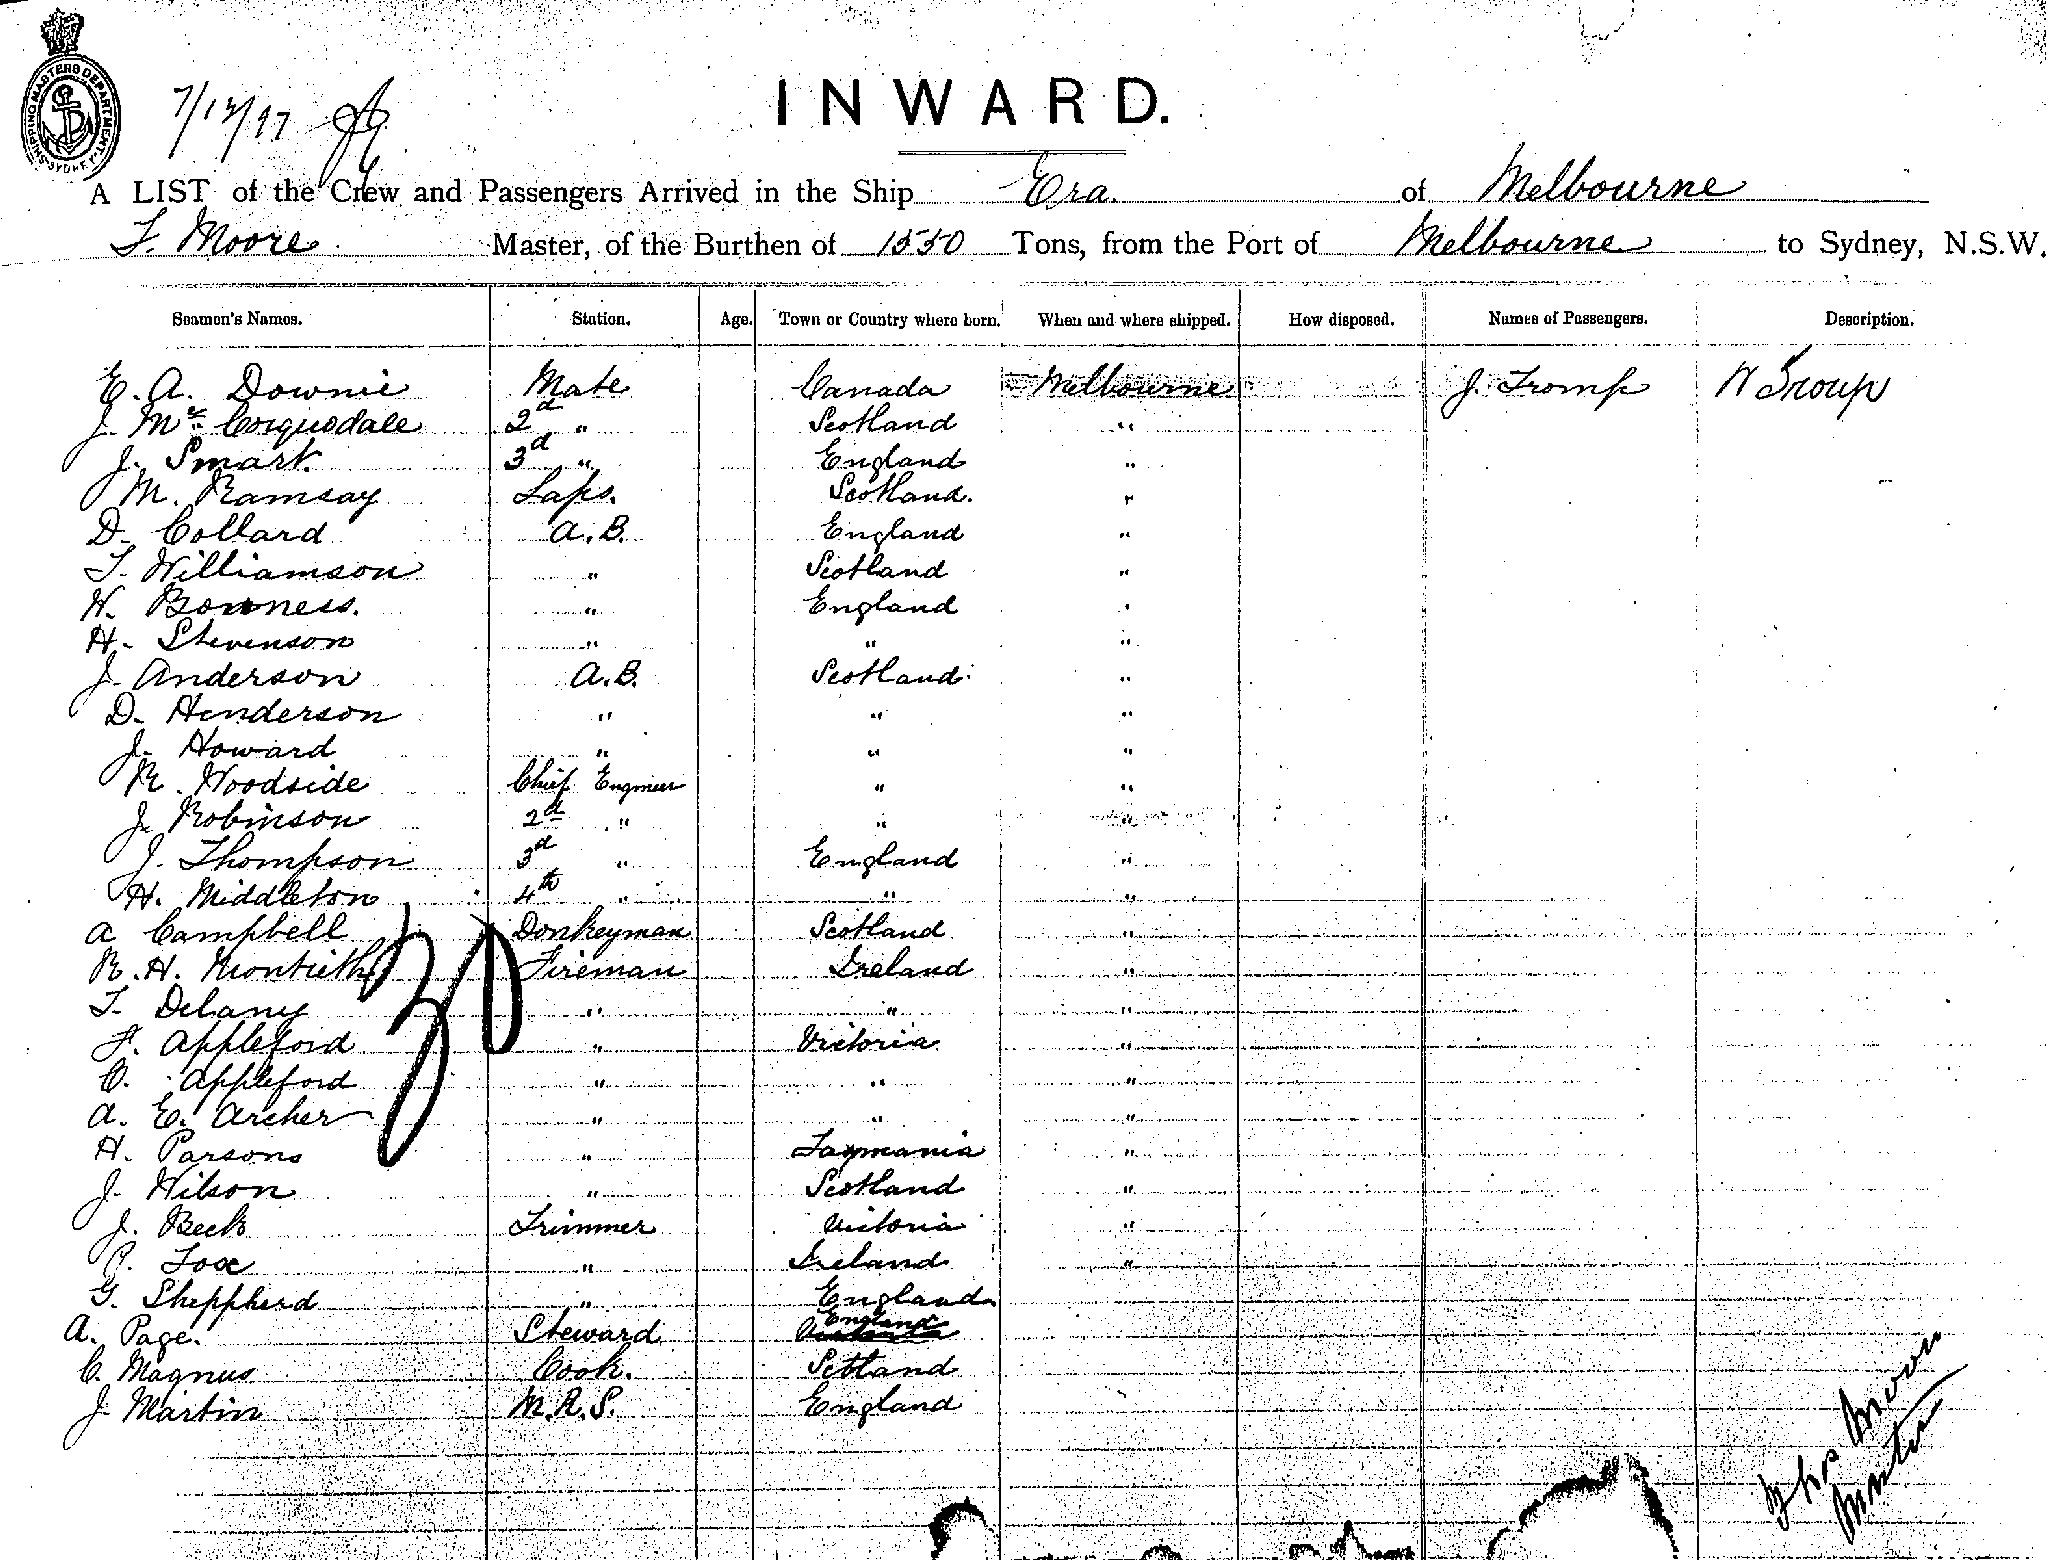 SHIPPING MASTERS DEPARTMENT SYDNEY
7/12/97
INWARD.
A LIST of the Crew and Passengers Arrived in the Ship Era. of Melbourne
T. Moore Master, of the Burthen of 1550 Tons, from the Port of Melbourne to Sydney, N.S.W.
Seamen's Names. Station. Age. Town or Country where born. When and where shipped. How disposed. Names of Passengers. Description.
E. A. Downie Mate Canada Melbourne J. Tromp
J. Mc Corquodale 2d " Scotland "
J. Smart. 3d " England "
M. Ramsay Laps. Scotland. "
D. Collard A.B. England "
T. Williamson " Scotland "
W. Bowness. " England "
H. Stevenson " " "
J. Anderson A.B. Scotland "
D. Henderson " " "
J. Howard " " "
R. Woodside Chief Engineer " "
J. Robinson 2d " " "
J. Thompson 3d " England "
H. Middleton 4th " " "
A Campbell Donkeyman Scotland "
R. H. Montieth Fireman Ireland "
T. Delany " " "
F. Appleford " Victoria "
C. Appleford " " "
A. E. Archer " " "
H. Parsons " Tasmania "
J. Wilson " Scotland "
J. Beck Trimmer Victoria "
P. Fox " Ireland "
G. Sheppherd " England
A. Page. Steward England
C. Magnus Cook. Scotland
J. Martin M.R.S. England
30
Master